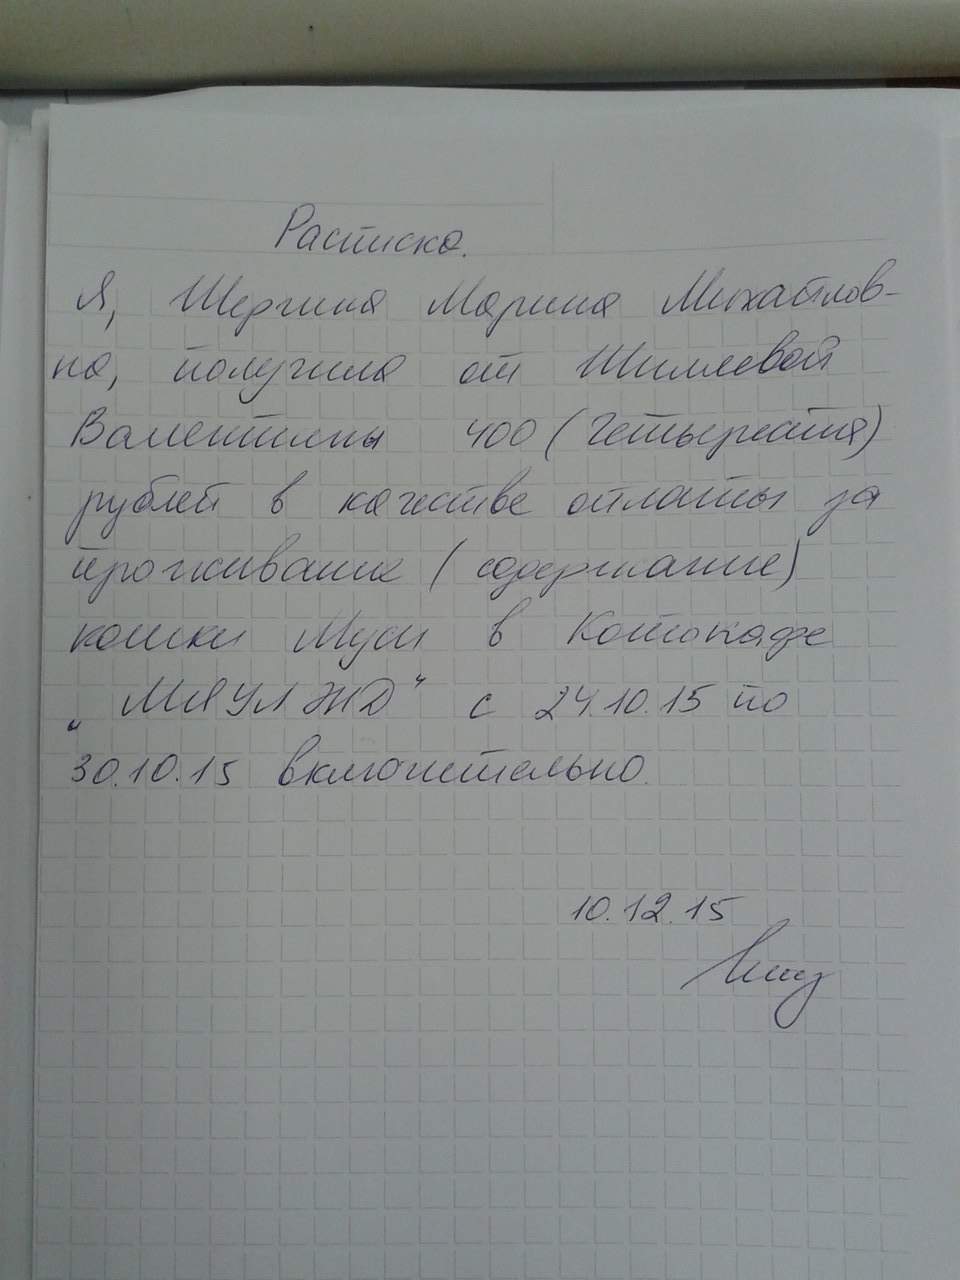 Расписка.
Я, Шергина Марина Михайлов-
на, получила от Шиляевой
Валентины 400 (Четыреста)
рублей в качестве оплаты за
проживание (содержание)
кошки Муси в Котокафе
„МЯУЛЖД" с 24.10.15 по
30.10.15 включительно.
10.12.15